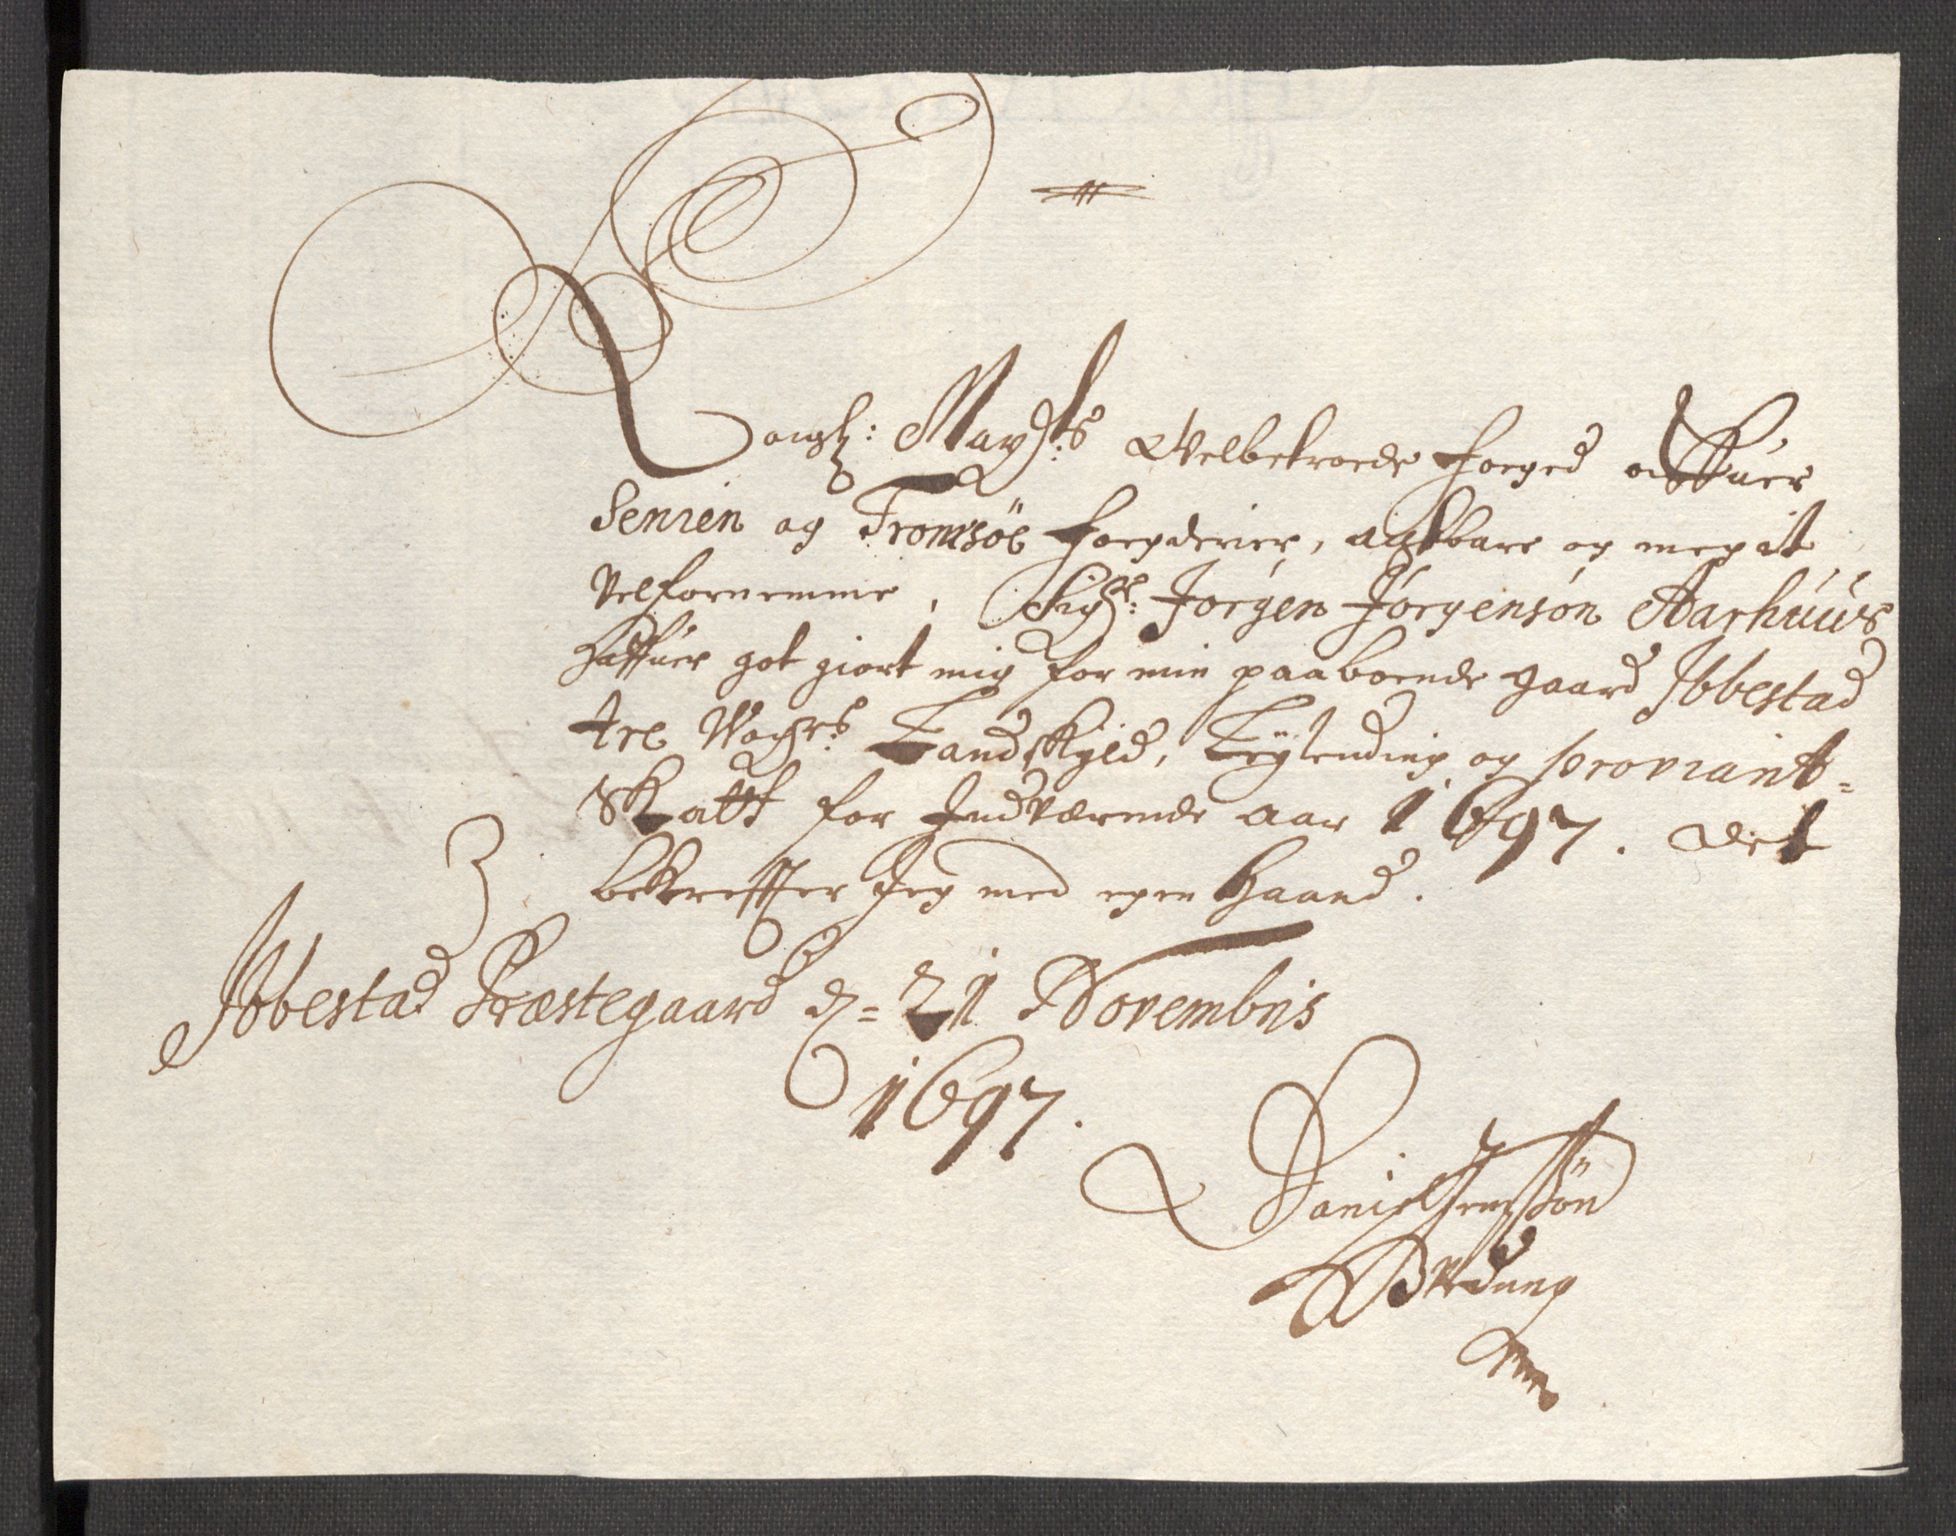 Kongl: Mayts Velbetroede Foeged offuer
Senien og Tromsøe Foegderier, agtbare og megit
Velfornemme, Sigr: Jørgen Jørgensøn Aarhuus
haffuer got giort mig for min paaboende gaard Ibbestad
tre Wogrs Landskyld, Leylending og proviant-
Skatt for Indværende aar 1697. Det
bekreffter Jeg med egen Haand.
Ibbestad Præstegaard d= 21 Novembris
1697.
Daniel Jenssøn